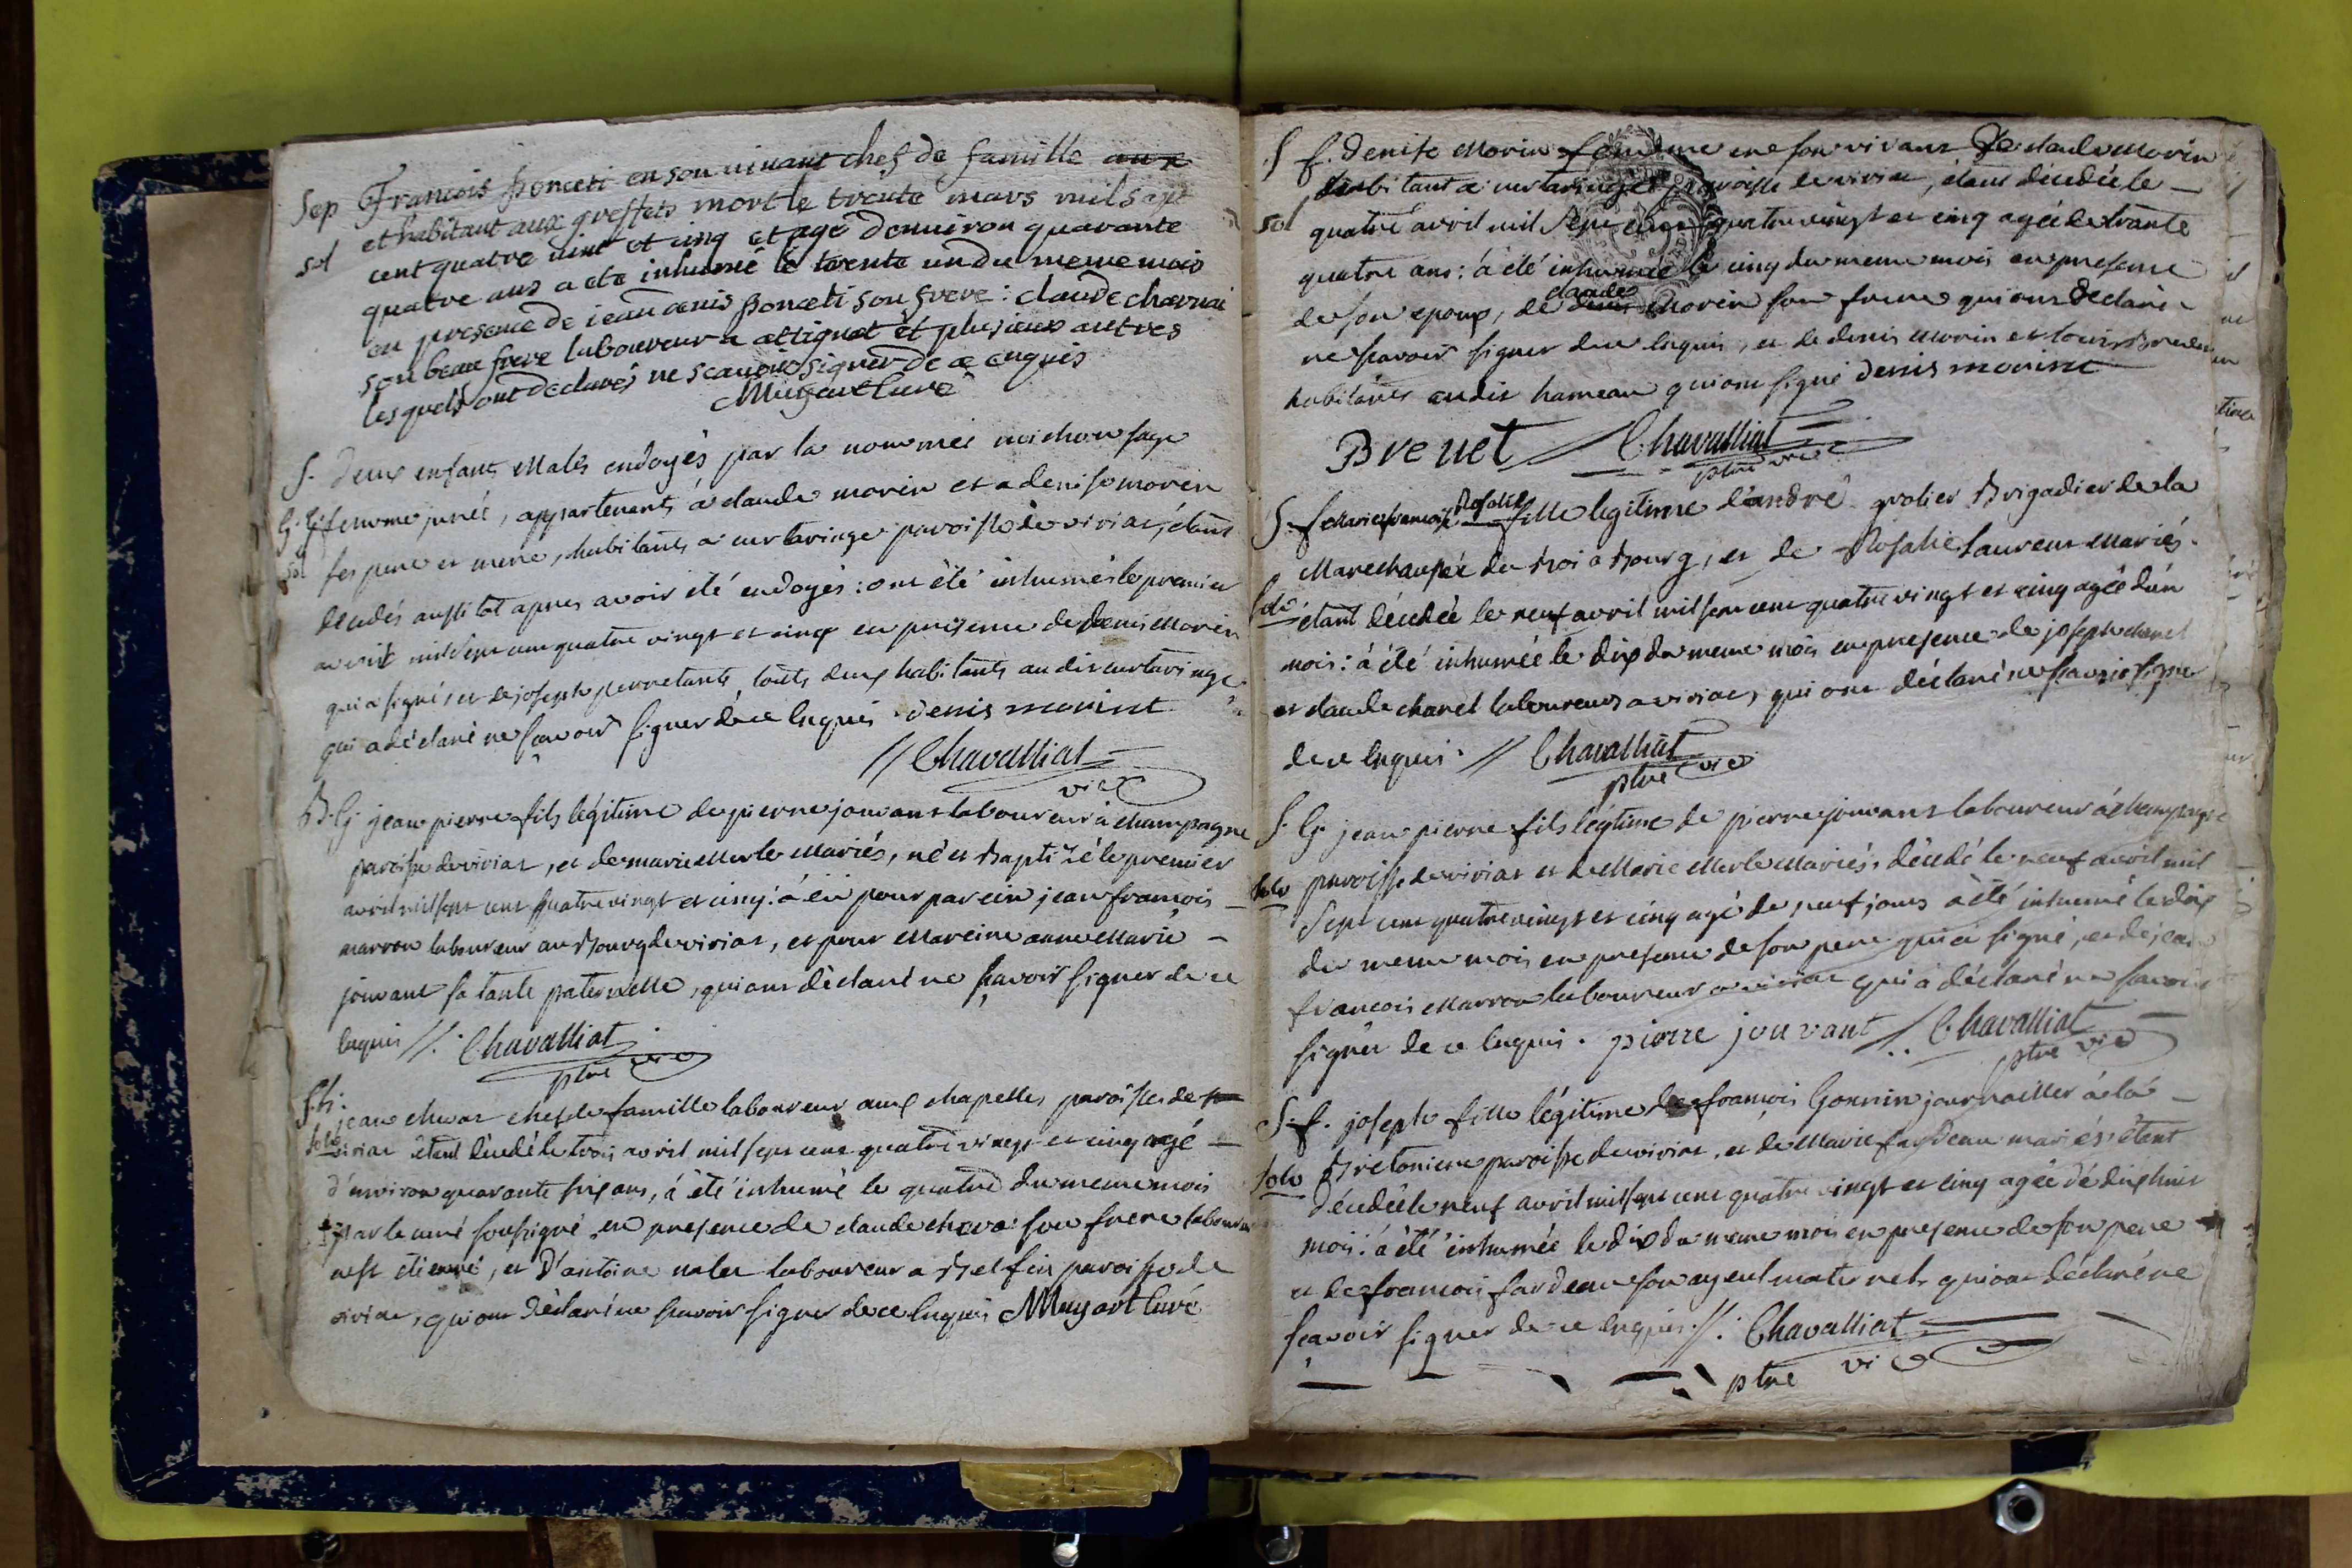 Sep François ponceti en son vivant chef de famille aux
et habitant aux greffets mort le trente mars mil sept
sol cent quatre vint et cinq et agé denuiron quarante
quatre ans a ete inhumé le trente un du meme mois
en presence de jean denis ponceti son frere : claude charnai
son beau frere laboureur a attignat et plusieurs autres
lesquels ont declarés ne scauoir signer de ce enquis
Mugart curé
S. deux enfants males endoyés par la nommée michon sage
G.G. femme jurée, appartenants á claude morin et a denise morin
sol ses pere et mere, habitants a curtaringe paroisse de viriat, étant
décédés aussitot apres avoir été endoyés : ont été inhumés le premier
avril mil sept cent quatre vingt et cinq en presence de denis Morin
qui a signé, et de joseph perretants, touts deux habitants audit curtaringe
qui a déclaré ne sçavoir signer de ce enquis denis morint
// Chavalliat
vic
B.G. jean pierre fils légitime de pierre jouvant laboureur à champagne
paroisse de viriat, et de marie Merle mariés, né et baptizé le premier
avril mil sept cent quatre vingt et cinq : á eu pour parein jean françois
marron laboureur au bourg de viriat, et pour Mareine anne Marie
jouvant sa tante paternelle, qui ont déclaré ne sçavoir signer de ce
enquis //. Chavalliat
ptre vic
S.G. jean chevat chef de famille laboureur aux chapelles paroisse de
solo viriat étant décédé le trois avril mil sept cent quatre vingt et cinq agé
d'environ quarante six ans, á été inhumé le quatre du meme mois
par le curé soussigné en presence de claude cheva son frere laboureur
a st étienne, et d'antoine laboureur a belfin paroisse de
viriat, qui ont déclaré ne sçavoir signer de ce enquis Mugart curé
S f. denise Morin femme en son vivant de claude Morin
habitant a curtaringe paroisse de viriat, étant décédée le
sol quatre avril mil sept cent quatre vingt et cinq agée de trante
quatre ans : á été inhumée le cinq du meme mois en presence
de son epoux, de claude morin son frere qui ont déclaré
ne sçavoir signer de ce enquis, et de denis Morin et louis brevet
habitants audit hameau qui ont signé denis morint
Brevet Chavalliat
ptre vic
S. f Marie françoise Rosalie fille legitime d'andré grolier Brigadier de la
Marechaussée du Roi a bourg, et de Rosalie Laurent mariés.
solo étant décédée le neuf avril mil sept cent quatre vingt et cinq agée d'un
mois : á été inhumée le dix du meme mois en presence de joseph chanel
et claude chanel laboureurs a viriat, qui ont déclaré ne sçavoir signer
de ce enquis. // Chavalliat
ptre vic
S. G. jean pierre fils légitime de pierre jouvant laboureur á champagne
solo paroisse de viriat et de Marie Merle Mariés. décédé le neuf avril mil
sept cent quatre vingt et cinq agé de neuf jours á été inhumé le dix
du meme mois en presence de son pere qui á signé, et de jean
françois Marron laboureur a viriat qui á déclaré ne savoir
signer de ce enquis. pierre jouvant //. Chavalliat
ptre vic
S. f. josephe fille légitime de françois Gonnin journaillier á la
solo Bretoniere paroisse de viriat, et de Marie fardeau mariés, étant
décédée le neuf avril mil sept cent quatre vingt et cinq agée de dix huit
mois : á été inhumée le dix du meme mois en presence de son pere
et de françois fardeau son ayeul maternel, qui ont déclaré ne
sçavoir signer de ce enquis. //. Chavalliat
ptre vic